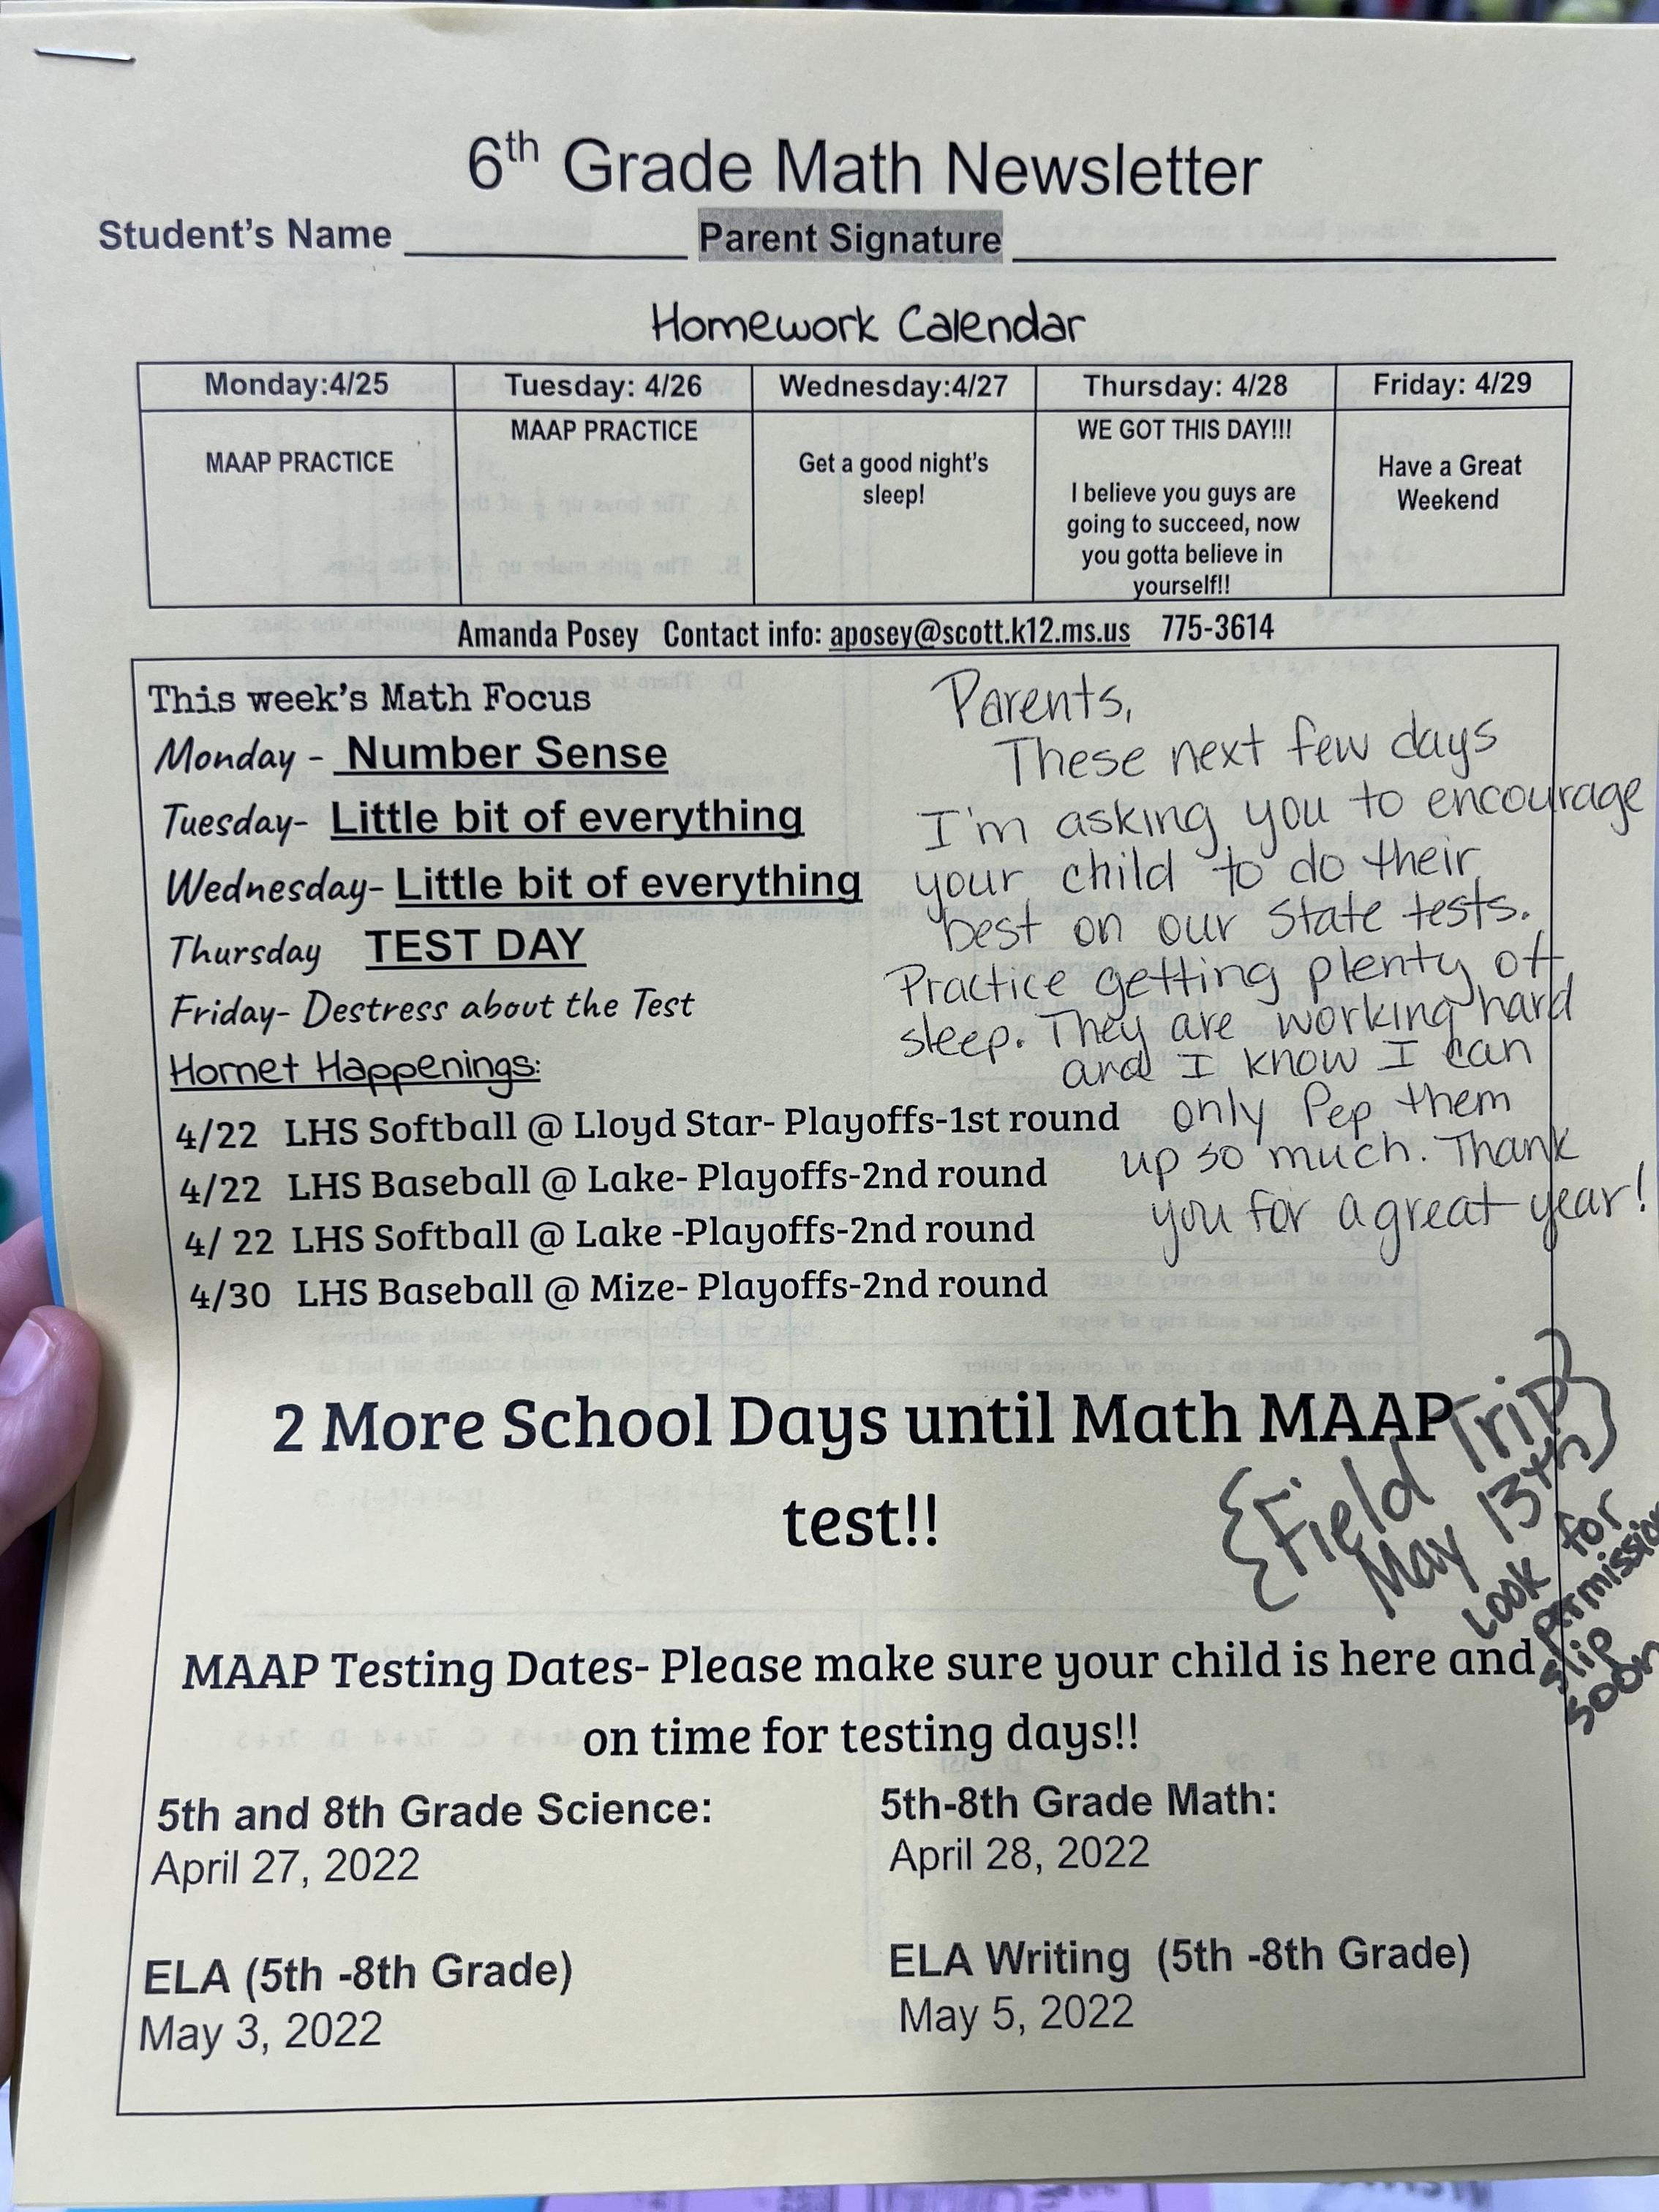 6th Grade Math Newsletter
Student's Name ____________ Parent Signature ____________
Homework Calendar
Monday:4/25 Tuesday: 4/26 Wednesday:4/27 Thursday: 4/28 Friday: 4/29
MAAP PRACTICE
MAAP PRACTICE
Get a good night's
sleep!
WE GOT THIS DAY!!!
I believe you guys are
going to succeed, now
you gotta believe in
yourself!!
Have a Great
Weekend
Amanda Posey Contact info: aposey@scott.k12.ms.us 775-3614
This week's Math Focus
Monday - Number Sense
Tuesday- Little bit of everything
Wednesday- Little bit of everything
Thursday TEST DAY
Friday- Destress about the Test
Hornet Happenings:
4/22 LHS Softball @ Lloyd Star- Playoffs-1st round
4/22 LHS Baseball @ Lake- Playoffs-2nd round
4/ 22 LHS Softball @ Lake -Playoffs-2nd round
4/30 LHS Baseball @ Mize- Playoffs-2nd round
Parents,
These next few days
I'm asking you to encourage
your child to do their
best on our State tests.
Practice getting plenty of
sleep. They are working hard
and I know I can
only Pep them
up so much. Thank
you for a great year!
2 More School Days until Math MAAP
test!!
{Field Trip}
May 13th
Look for
permission
slip
soon
MAAP Testing Dates- Please make sure your child is here and
on time for testing days!!
5th and 8th Grade Science:
April 27, 2022
5th-8th Grade Math:
April 28, 2022
ELA (5th -8th Grade)
May 3, 2022
ELA Writing (5th -8th Grade)
May 5, 2022